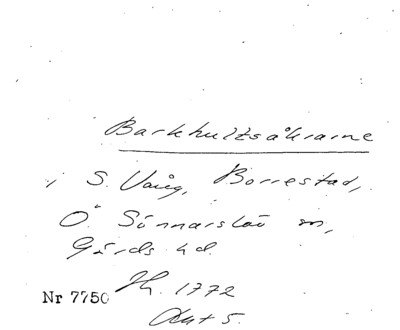 Barkhultsåkrarne
i S. Vång, Borrestad,
Ö Sönnarslöv sn,
Gärds hd.
Jh. 1772
Nr 7750
Akt 5.